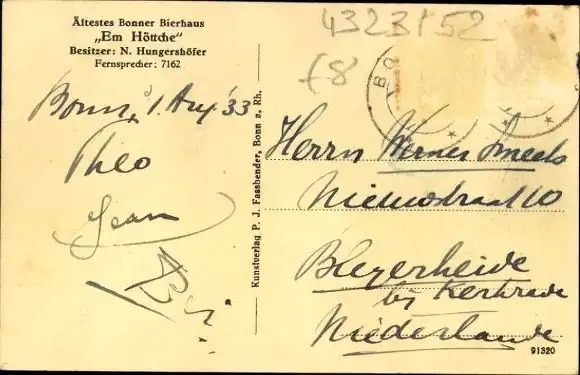 Ältestes Bonner Bierhaus
„Em Höttche"
Besitzer: N. Hungershöfer
Fernsprecher: 7162
4323152
£8
BO
Bonn, 1. Aug '33
Theo
Jean
Kunstverlag P. J. Fassbender, Bonn a. Rh.
Herrn Werner Smeets
Nieuwstraat 10
Bleyerheide
bij Kerkrade
Niederlande
91320